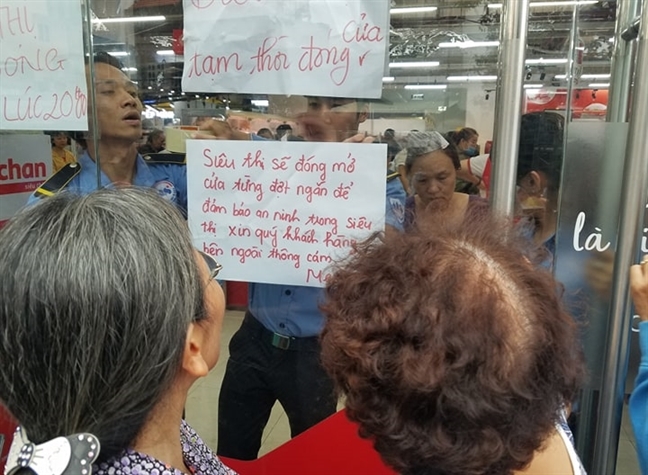 THỊ
ĐÓNG
LÚC 20
chan
của
tạm thời đóng
Siêu thị sẽ đóng mở
cửa từng đợt ngắn để
đảm bảo an ninh trong siêu
thị xin quý khách hàng
bên ngoài thông cảm
là